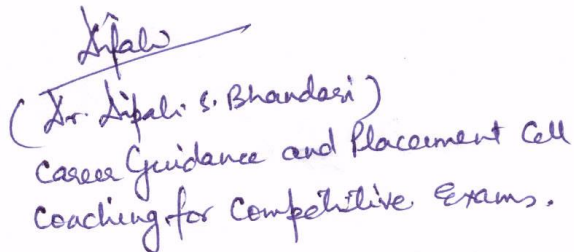 Dipali
(Dr. Dipali. S. Bhandari)
Career Guidance and Placement Cell
Coaching for Competitive Exams.